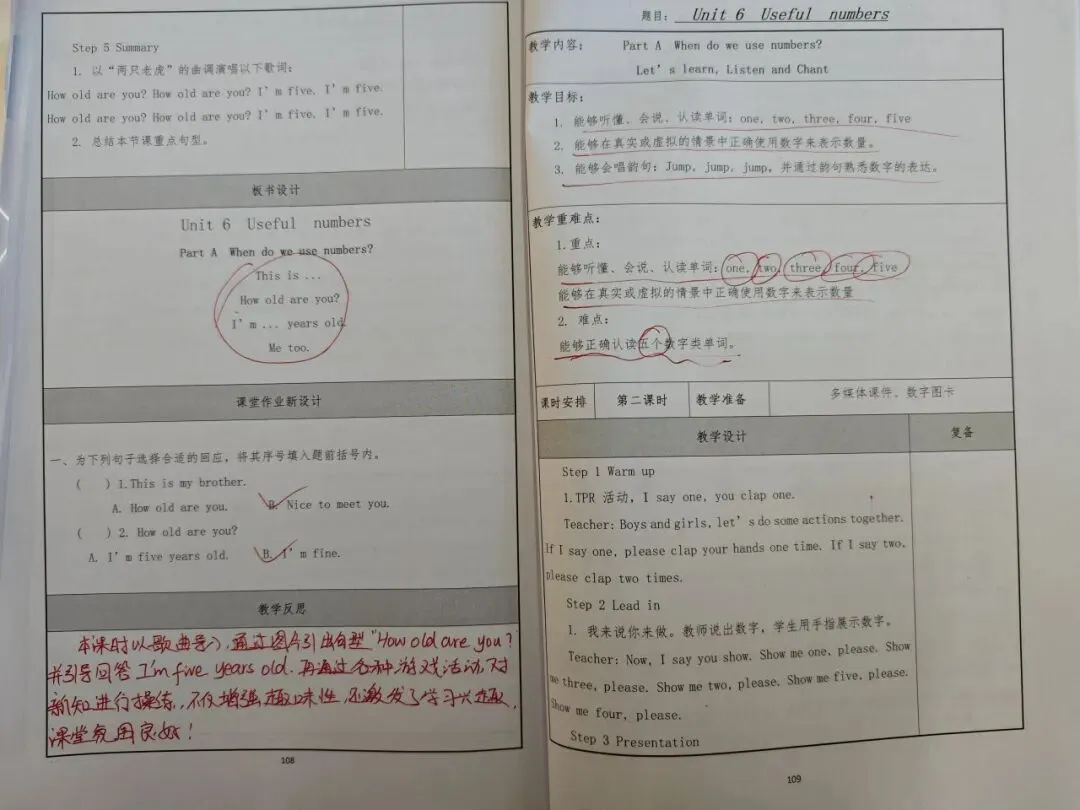 Step 5 Summary
1. 以“两只老虎”的曲调演唱以下歌词:
How old are you? How old are you? I'm five. I'm five.
How old are you? How old are you? I'm five. I'm five.
2. 总结本节课重点句型。
板书设计
Unit 6 Useful numbers
Part A When do we use numbers?
This is ...
How old are you?
I'm ... years old.
Me too.
课堂作业新设计
一、为下列句子选择合适的回应，将其序号填入题前括号内。
( ) 1. This is my brother.
A. How old are you. B. Nice to meet you.
( ) 2. How old are you?
A. I'm five years old. B. I'm fine.
教学反思
本课时以歌曲导入，通过图片引出句型"How old are you?
并引导回答 I'm five years old. 再通过各种游戏活动,对
新知进行操练,不仅增强趣味性,还激发了学习兴趣,
课堂氛围良好!
108
题目: Unit 6 Useful numbers
教学内容: Part A When do we use numbers?
Let's learn, Listen and Chant
教学目标:
1. 能够听懂、会说、认读单词: one, two, three, four, five
2. 能够在真实或虚拟的情景中正确使用数字来表示数量。
3. 能够会唱韵句: Jump, jump, jump, 并通过韵句熟悉数字的表达。
教学重难点:
1. 重点:
能够听懂、会说、认读单词: one, two, three, four, five
能够在真实或虚拟的情景中正确使用数字来表示数量
2. 难点:
能够正确认读五个数字类单词。
课时安排 第二课时 教学准备 多媒体课件、数字图卡
教学设计 复备
Step 1 Warm up
1. TPR 活动, I say one, you clap one.
Teacher: Boys and girls, let's do some actions together.
If I say one, please clap your hands one time. If I say two,
please clap two times.
Step 2 Lead in
1. 我来说你来做。教师说出数字，学生用手指展示数字。
Teacher: Now, I say you show. Show me one, please. Show
me three, please. Show me two, please. Show me five, please.
Show me four, please.
Step 3 Presentation
109